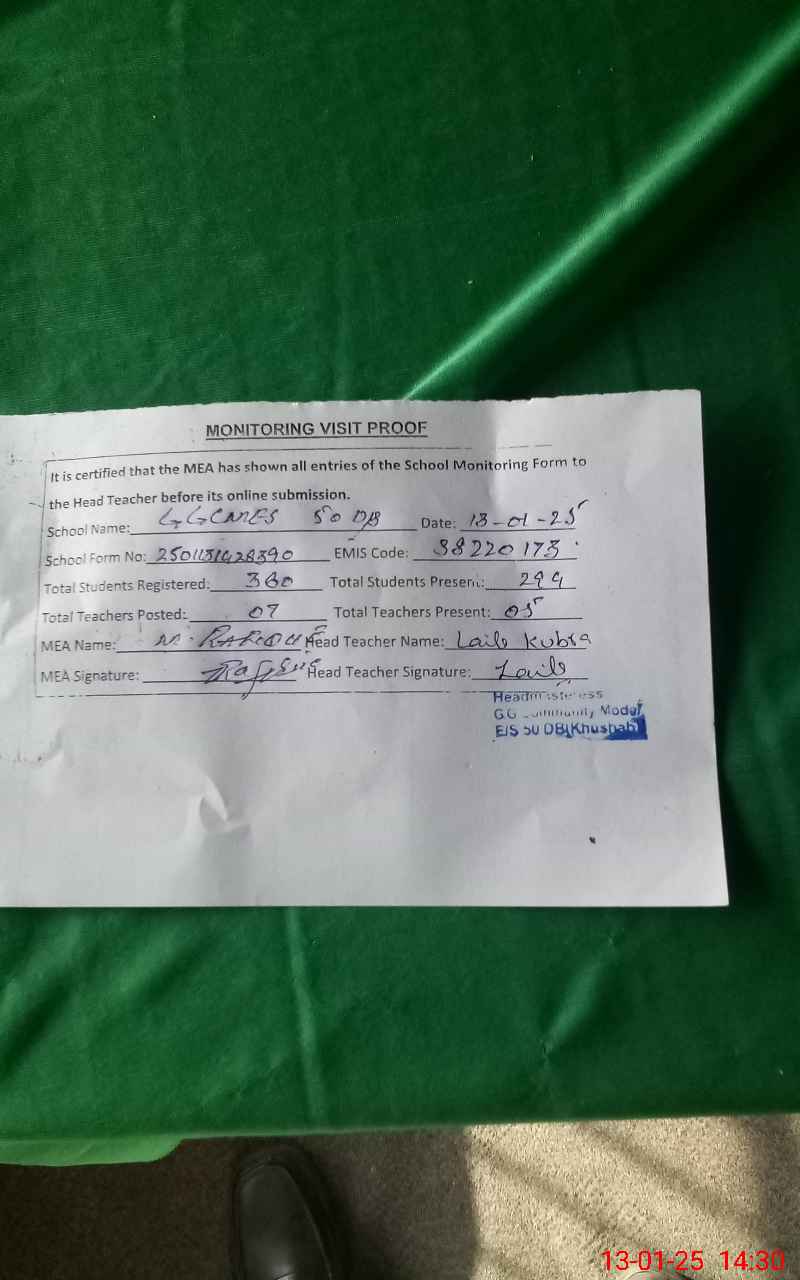 MONITORING VISIT PROOF
It is certified that the MEA has shown all entries of the School Monitoring Form to
the Head Teacher before its online submission.
School Name: GGCMES 50 DB Date: 13-01-25
School Form No: EMIS Code: 38220173
Total Students Registered: 360 Total Students Present: 299
Total Teachers Posted: 07 Total Teachers Present: 05
MEA Name: M. Head Teacher Name: Laila Kubra
MEA Signature: Head Teacher Signature: Laila
Headmisteress
GG Community Model
E/S 50 DB(Khushab)
13-01-25 14:30